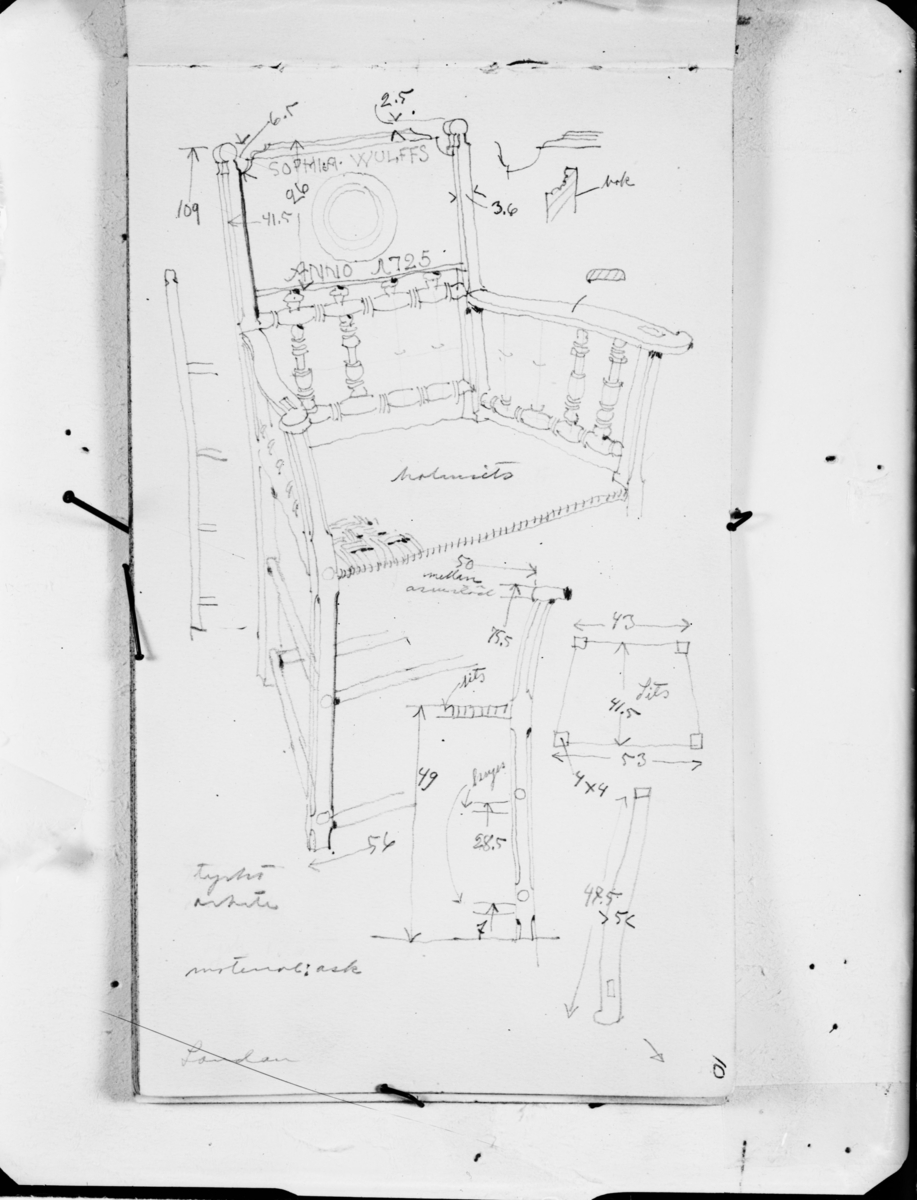 2.5
6.5
SOPHIA. WULFFS
109
26
41.5
3.6
bok
ANNO 1725
halmsits
50
mellan
armstöd
75.5
43
sits
Sits
41.5
53
4x4
49
28.5
7
54
48.5
5
tyskt
arbete
material: ask
10